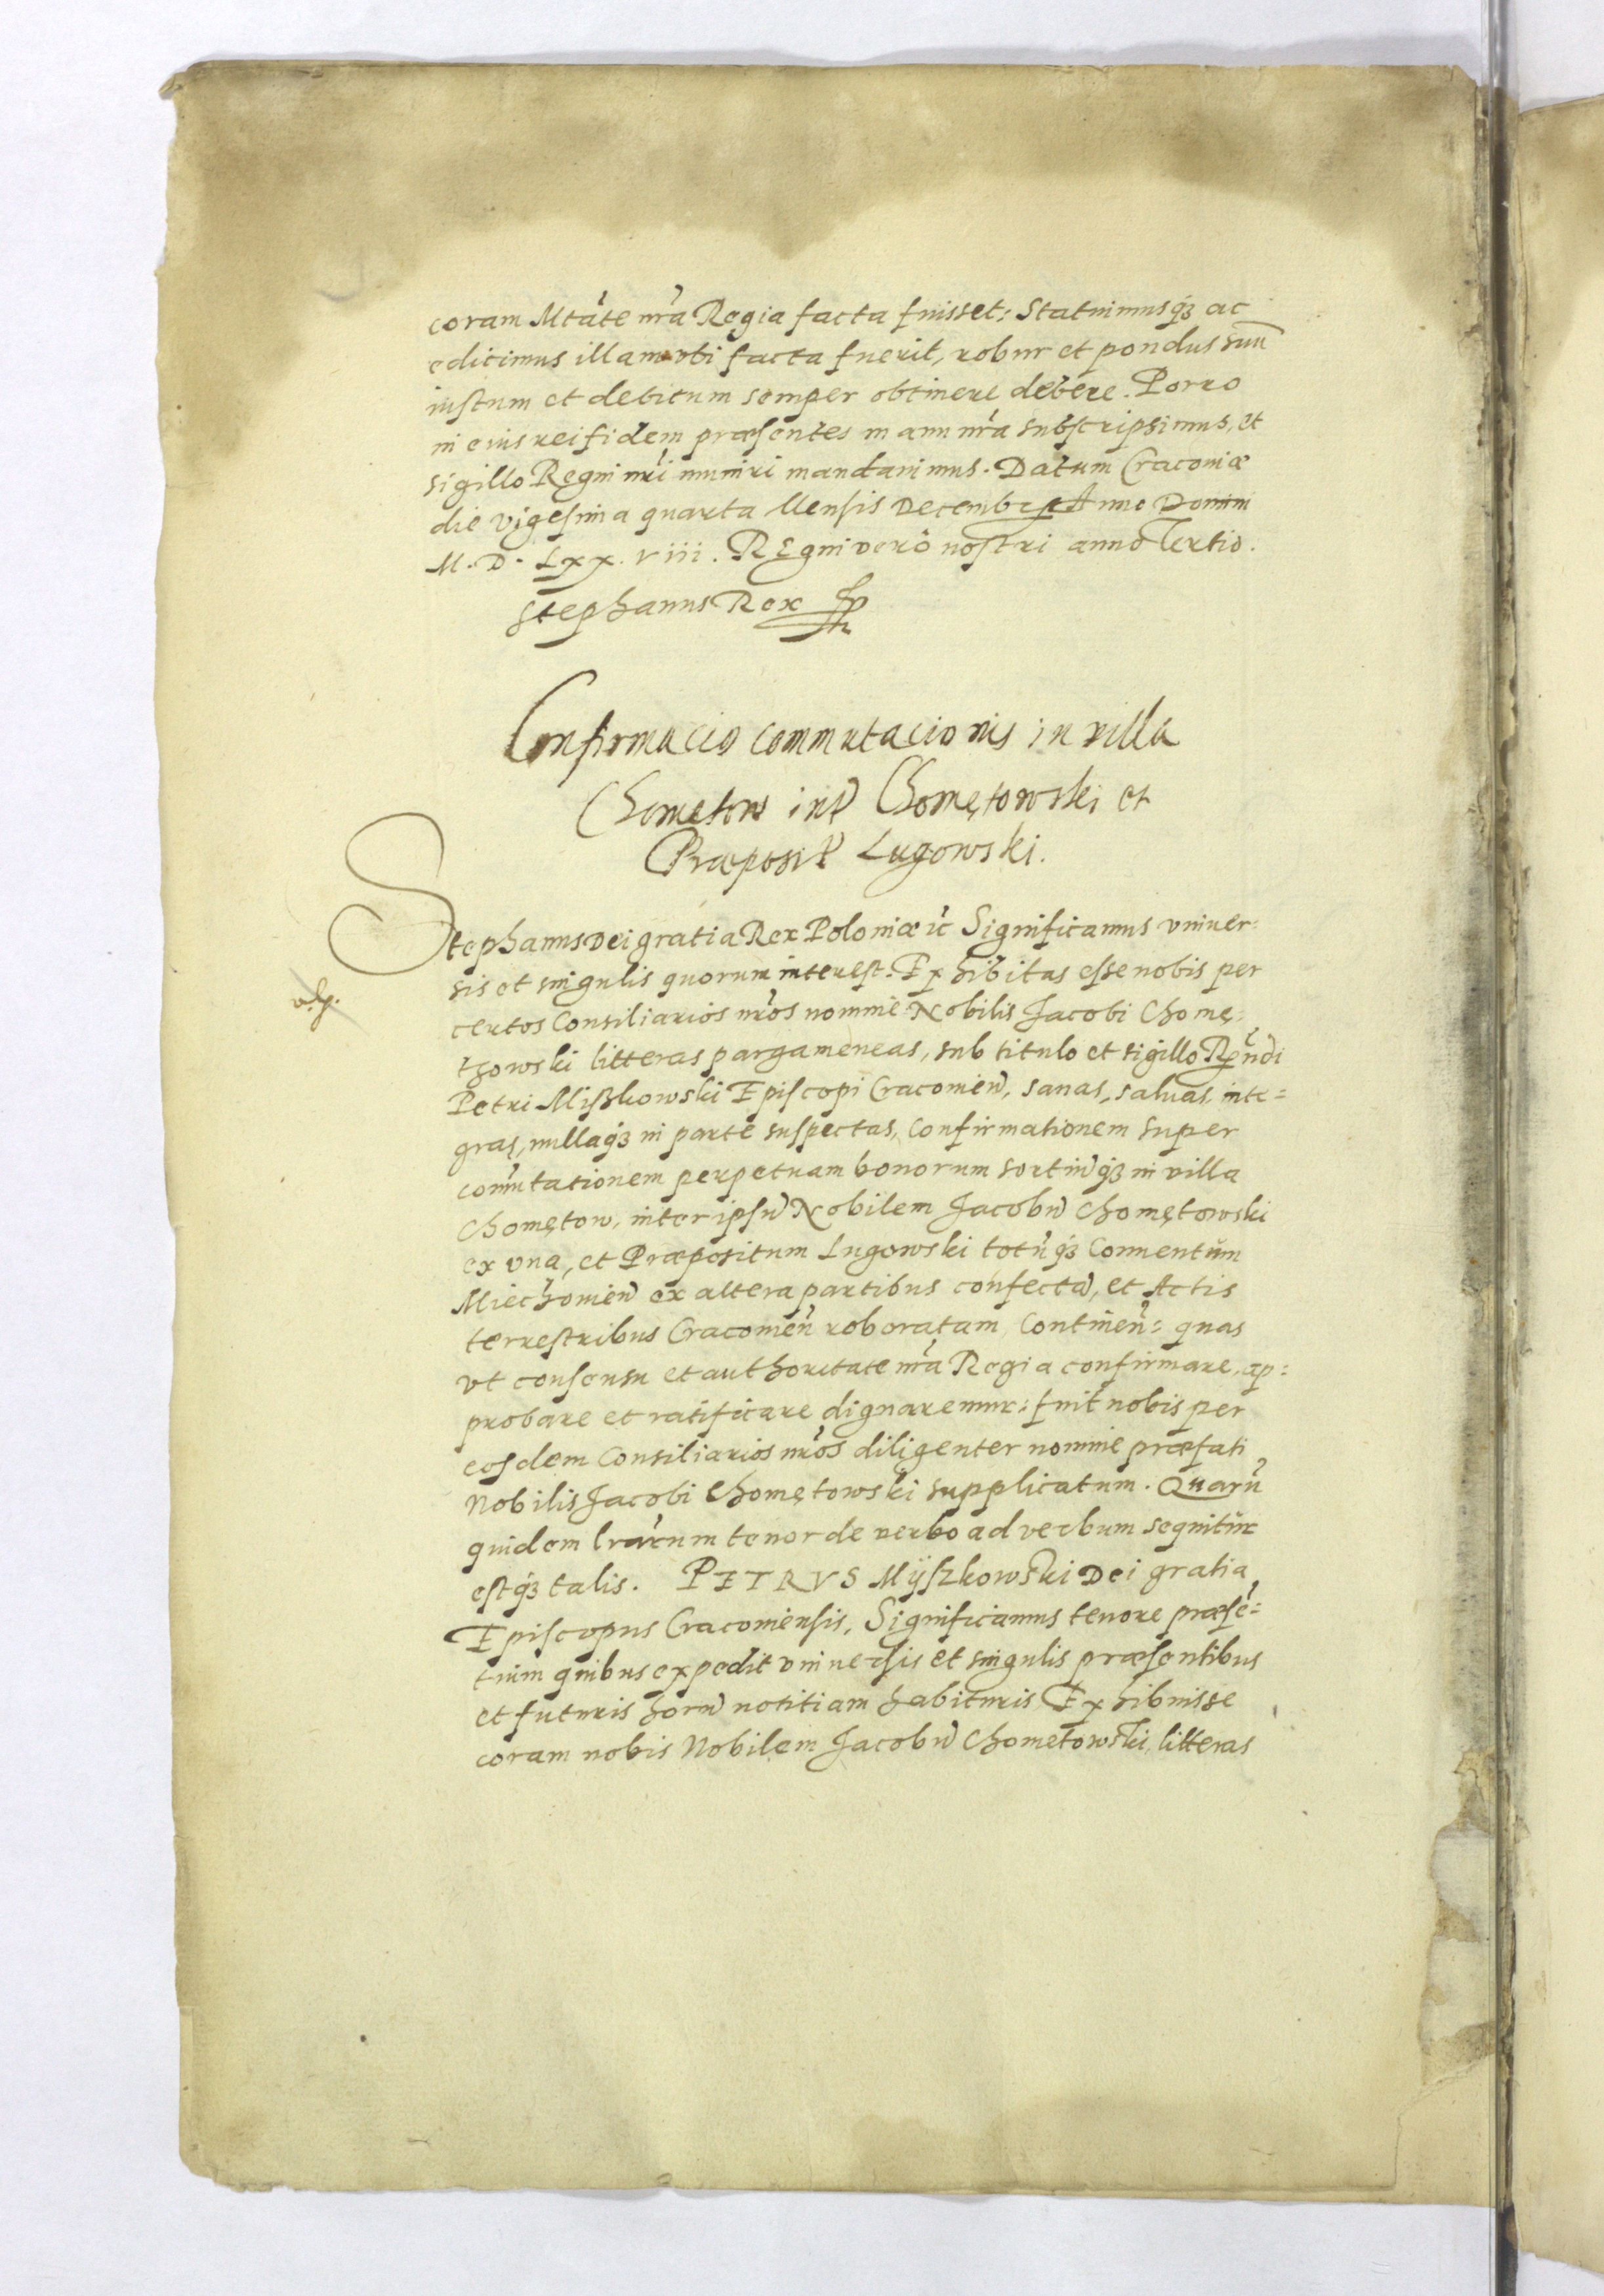 coram Mtate nra Regia facta fuisset: Statuimusq3 ac
edicimus illam vbi facta fuerit, robur et pondus suũ
iustum et debitum semper obtinere debere. Porro
in eius rei fidem præsentes manu nra subscripsimus, et
sigillo Regni nri muniri mandauimus. Datum Cracouiæ
die vigesima quarta Mensis Decembr Anno Domini
M. D. Lxx. viii. REgni vero nostri anno Tertio.
Stephanus Rex
Confirmacio commutacionis in villa
Chometow int Chomętowski et
Præposit Lugowski.
Stephanus Dei gratia Rex Poloniæ ic Significamus vniuer-
sis et singulis quorum interest. Exhibitas esse nobis per
certos Consiliarios nros nomine Nobilis Jacobi Chomę-
thowski litteras pargameneas, sub titulo et sigillo Rendi
Petri Mißkowski Episcopi Cracouien, sanas, saluas, inte=
gras, nullaq3 in parte suspectas, Confirmationem super
comutationem perpetuam bonorum sortiuq3 in villa
Chomętow, inter ipsu Nobilem Jacobu Chomętowski
ex vna, et Præpositum Lugowski totuq3 Conuentum
Miechouien ex altera partibus confecta, et Actis
terrestribus Cracouien roboratam Continen: quas
vt consensu et authoritate nra Regia confirmare, ap=
probare et ratificare dignaremur: fuit nobis per
eosdem Consiliarios nros diligenter nomine præfati
Nobilis Jacobi Chomętowski supplicatum. Quaru
quidem lrarum tenor de verbo ad verbum sequitur
estq3 talis. PETRVS Mÿszkowski Dei gratia
Episcopus Cracouiensis, Significamus tenore præse=
tium quibus expedit vniuersis et singulis præsentibus
et futuris horu notitiam habituris Exhibuisse
coram nobis Nobilem Jacobu Chometowski litteras